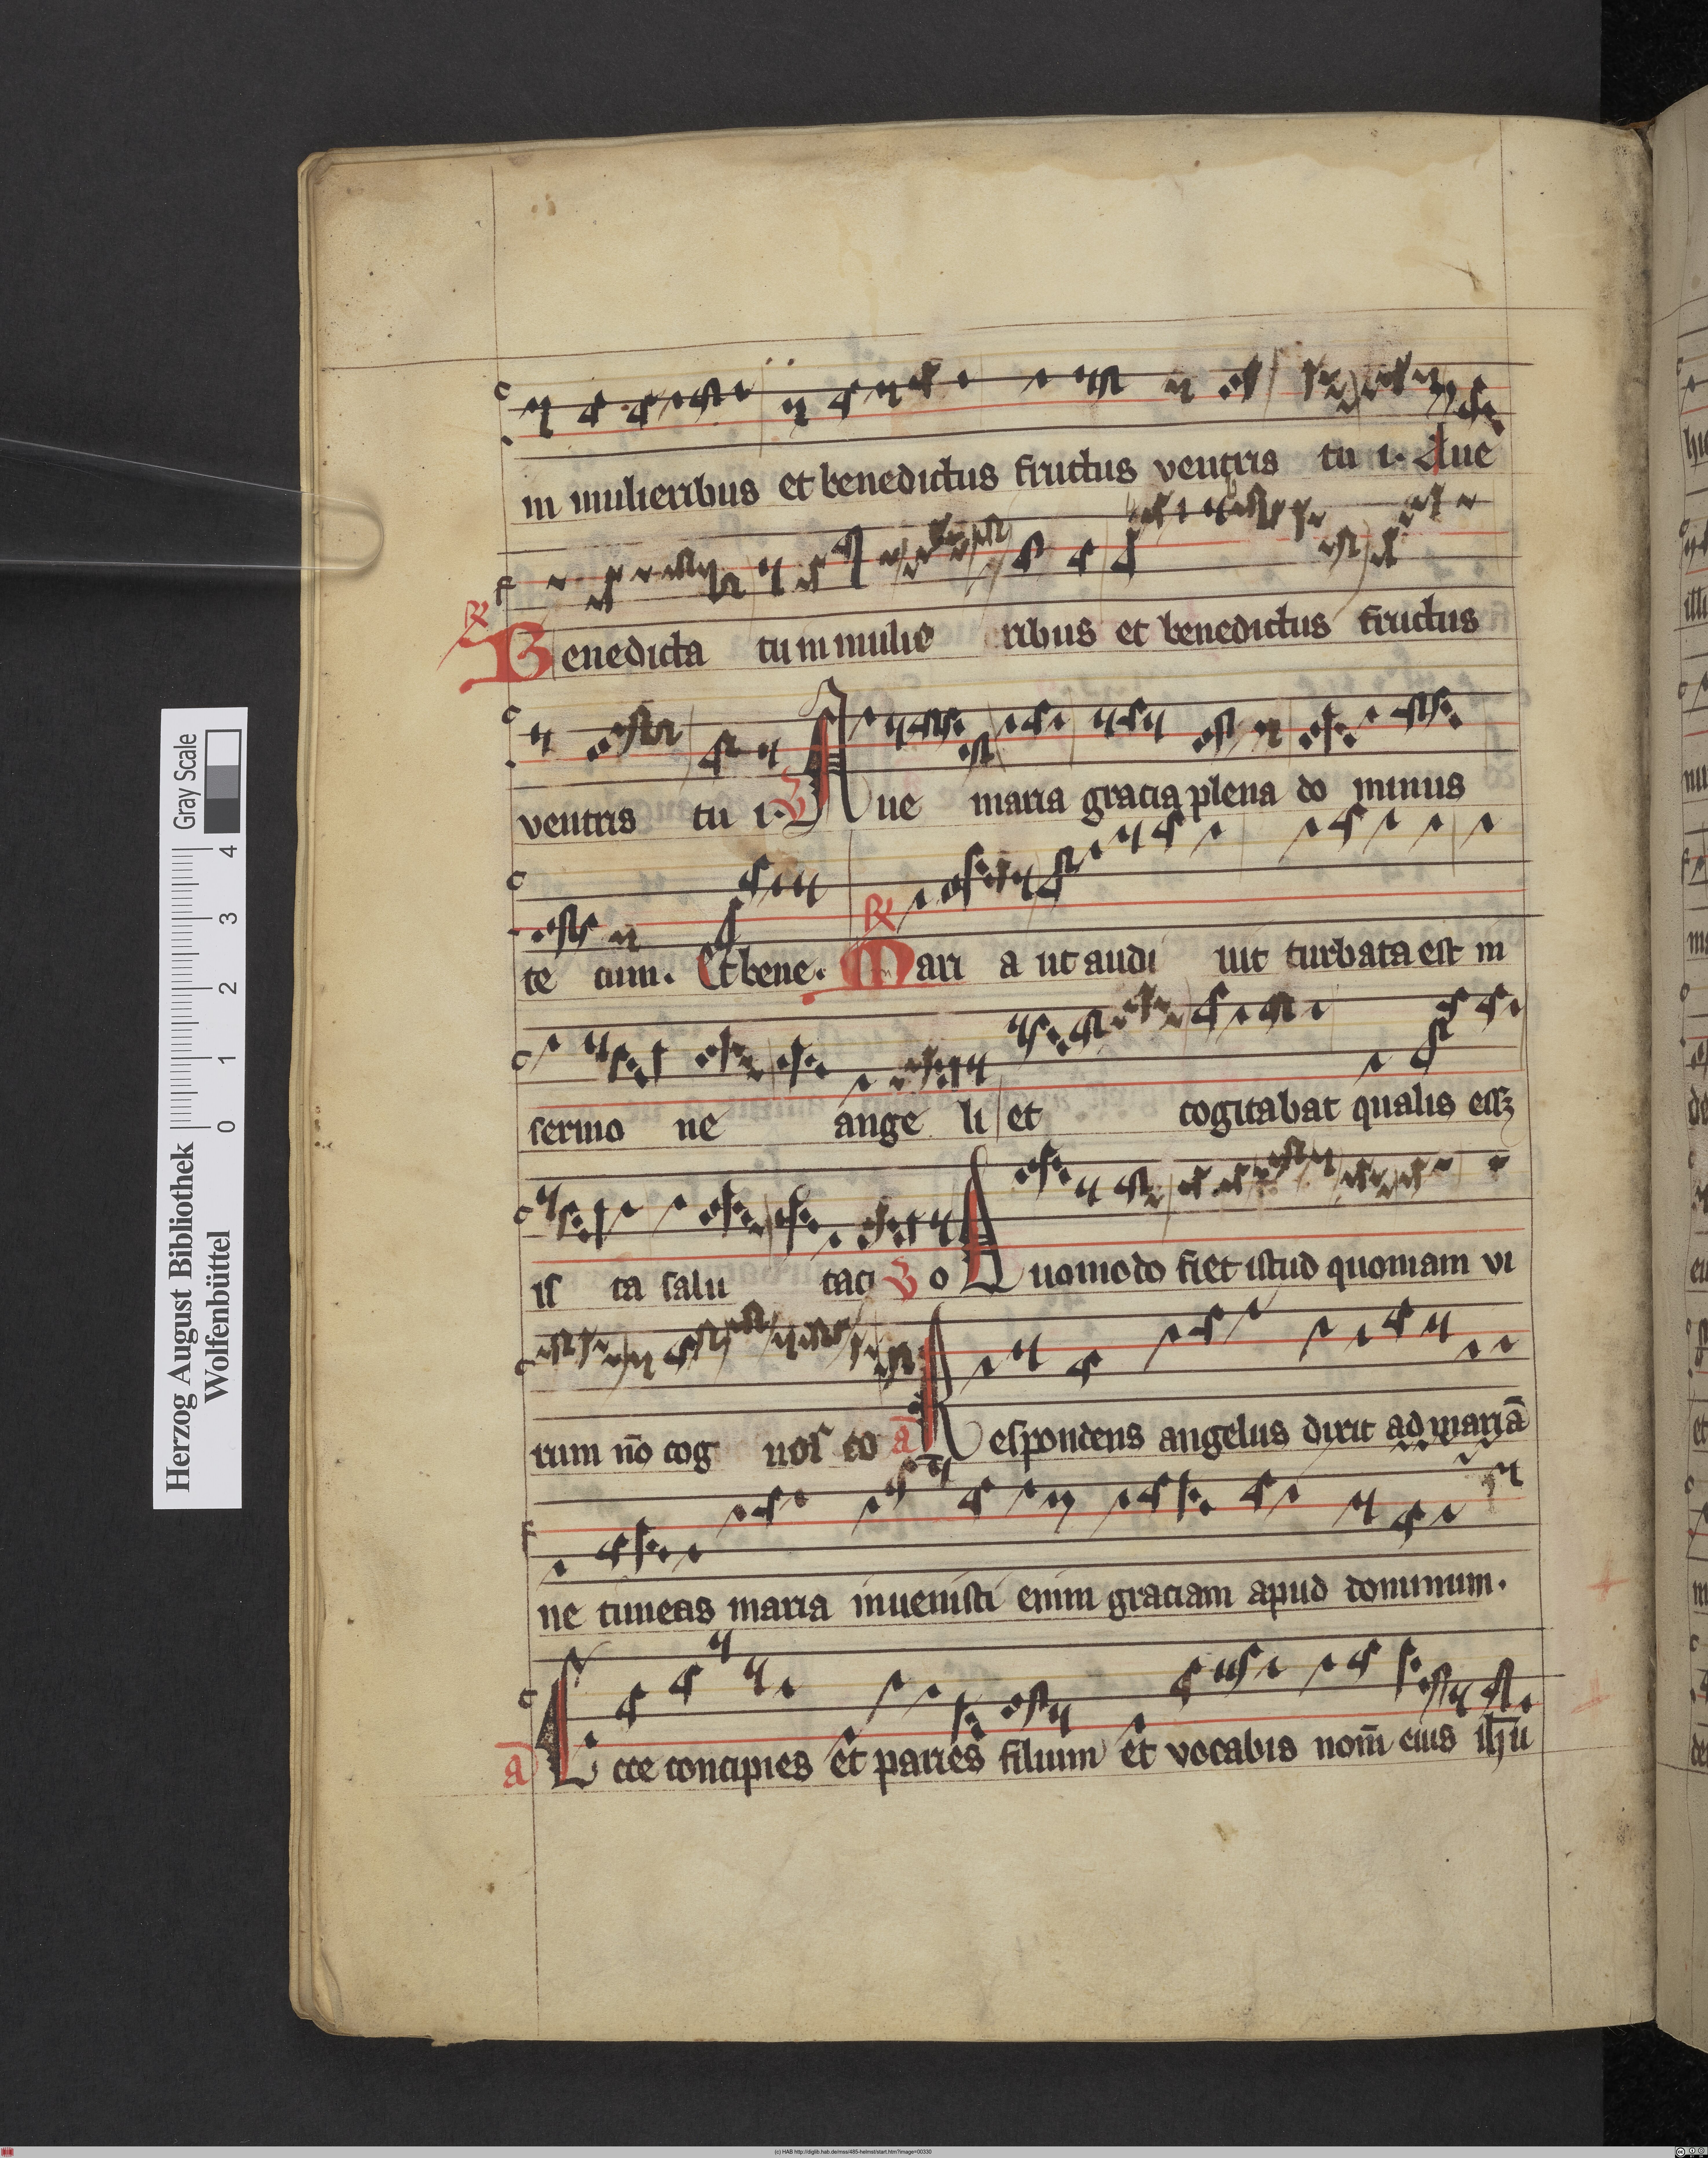 in mulieribus et benedictus fructus ventris tu i. Aue
R Benedicta tu in mulie ribus et benedictus fructus
ventris tu i. V Aue maria gracia plena do minus
te cum. Et bene. R Mari a ut audi uit turbata est in
sermo ne ange li et cogitabat qualis eēt
is ta salu taci V o Quomodo fiet istud quoniam vi
rum nō cog nos co a Respondens angelus dixit ad mariā
ne timeas maria inuenisti enim graciam apud dominum.
a Ecce concipies et paries filium et vocabis nom̄ eius ihū
Herzog August Bibliothek
Wolfenbüttel
Gray Scale
0 1 2 3 4
(c) HAB http://diglib.hab.de/mss/485-helmst/start.htm?image=00330